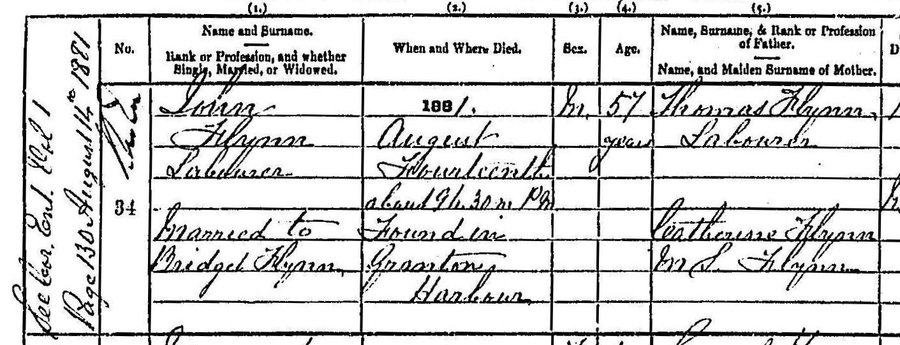 (1.) (2.) (3.) (4.) (5.)
No.
Name and Surname.
Rank or Profession, and whether
Single, Married, or Widowed.
When and Where Died.
Sex.
Age.
Name, Surname, & Rank or Profession
of Father.
Name, and Maiden Surname of Mother.
See Cor. Ent. Vol 1
Page 130 August 14th 1881
34
John
Flynn
Labourer
Married to
Bridget Flynn
1881.
August
Fourteenth
about 9h. 30m P.M
Found in
Granton
Harbour
M.
57
years
Thomas Flynn
Labourer
Catherine Flynn
M.S. Flynn